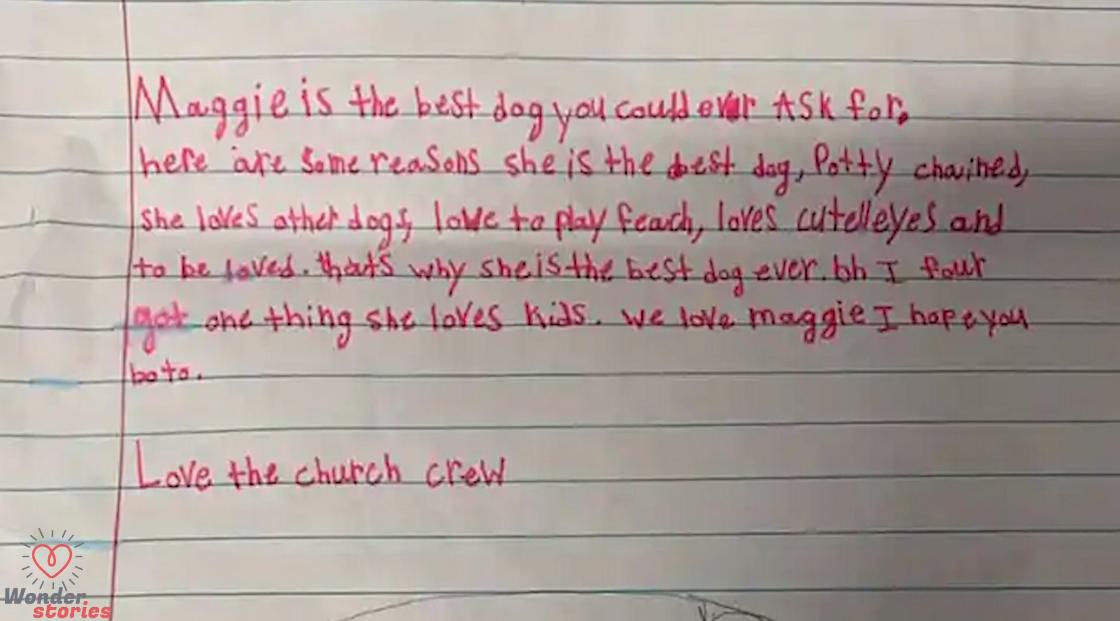 Maggie is the best dog you could ever ASK for.
here are some reasons she is the best dog, Potty chained,
she loves other dogs, love to play feach, loves cutelleyes and
to be loved. thats why she is the best dog ever. oh I four
got one thing she loves kids. we love maggie I hope you
boto.
Love the church crew
Wonder
stories